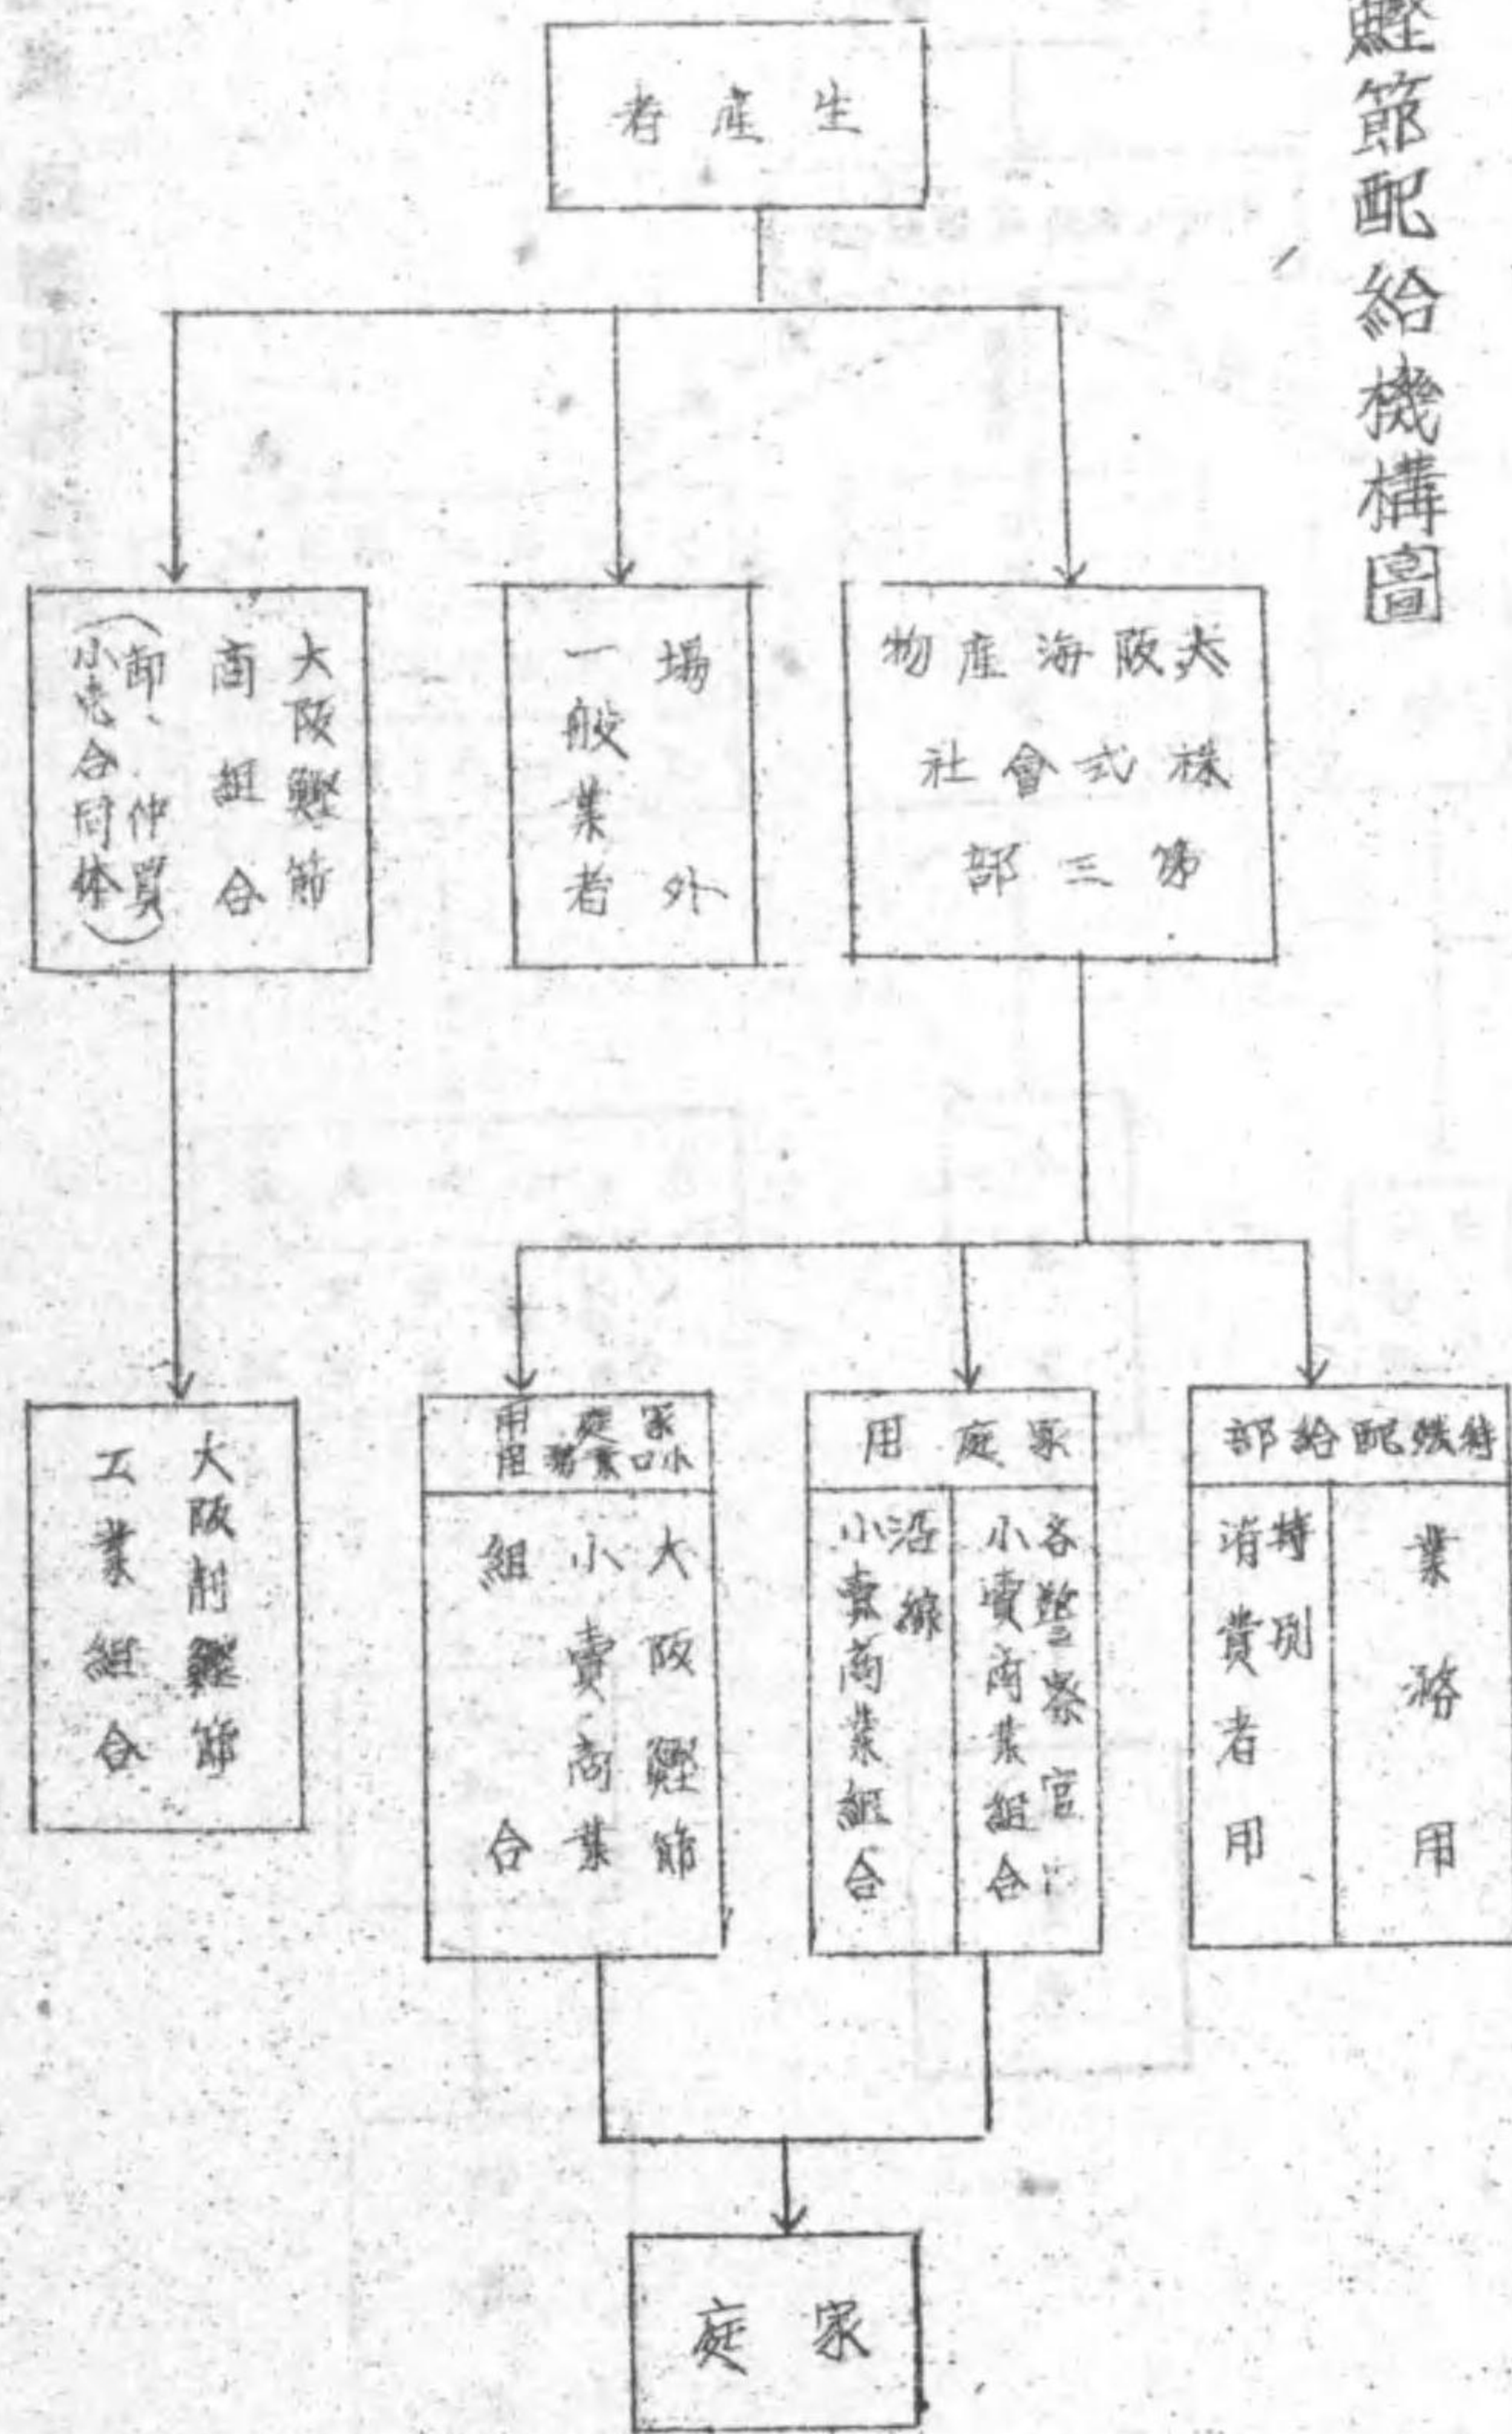 鰹節配給機構圖
生產者
大阪海產物
株式會社
第三部
場外
一般業者
大阪鰹節
商組合
(卸、仲買
小売合同体)
特殊配給部
業務用
特別
消費者用
家庭用
各警察官
小賣商業組合
沿線
小賣商業組合
家庭用
小口業務用
大阪鰹節
小賣商業
組合
大阪削鰹節
工業組合
家庭